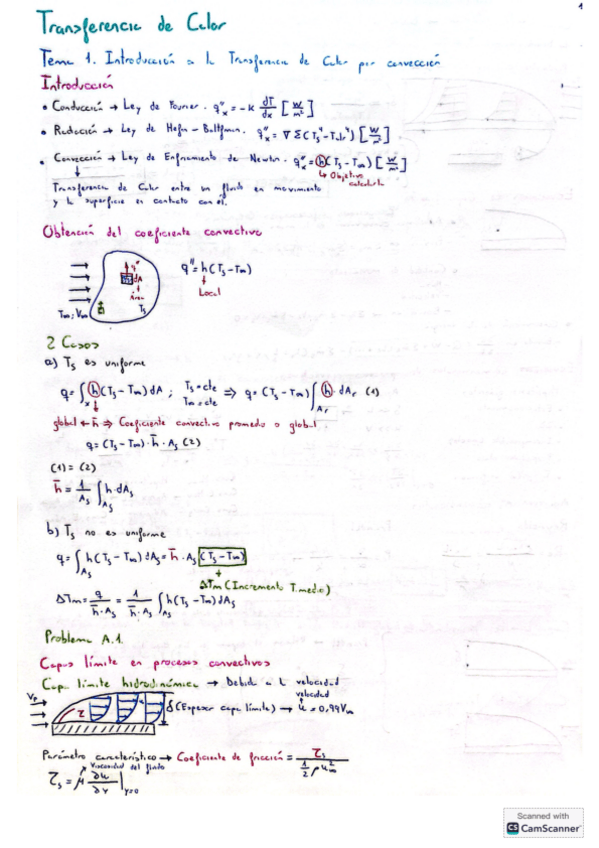 1
Transferencia de Calor
Tema 1. Introducción a la Transferencia de Calor por convección
Introducción
• Conducción → Ley de Fourier. q''ₓ = -k dT/dx [W/m²]
• Radiación → Ley de Stefan-Boltzman. q''ₓ = ∇ Ɛ (Tₛ⁴ - T⁴) [W/m²]
• Convección → Ley de Enfriamiento de Newton. q''ₓ = h (Tₛ - T∞) [W/m²]
↳ Objetivo calcularla
Transferencia de Calor entre un fluido en movimiento
y la superficie en contacto con él.
Obtención del coeficiente convectivo
q'' dA
Área
Tₛ
T∞; V∞
q'' = h(Tₛ - T∞)
Local
2 Casos
a) Tₛ es uniforme
q = ∫ h (Tₛ - T∞) dA ; Tₛ = cte T∞ = cte ⇒ q = (Tₛ - T∞) ∫ h · dA (1)
global ← h̄ ⇒ Coeficiente convectivo promedio o global
q = (Tₛ - T∞) · h̄ · Aₛ (2)
(1) = (2)
h̄ = 1/Aₛ ∫Aₛ h · dAₛ
b) Tₛ no es uniforme
q = ∫Aₛ h(Tₛ - T∞) dAₛ = h̄ · Aₛ (Tₛ - T∞)
ΔTm (Incremento T.medio)
ΔTm = q/(h̄ · Aₛ) = 1/(h̄ · Aₛ) ∫Aₛ h(Tₛ - T∞) dAₛ
Problema A.1.
Capas límite en procesos convectivos
Capa límite hidrodinámica → Debida a la velocidad
velocidad
δ (Espesor capa límite) → u = 0,99V∞
Parámetro característico → Coeficiente de fricción = τₛ / (½ ρ u∞²)
Viscosidad del fluido
τₛ = μ ∂u/∂y |y=0
Scanned with
CS CamScanner